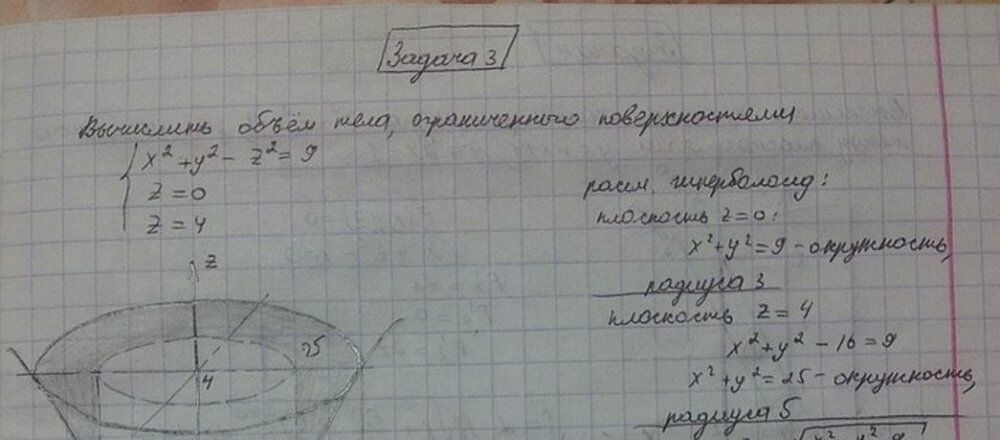 Задача 3
Вычислить объём тела, ограниченного поверхностями
x² + y² - z² = 9
z = 0
z = 4
z
25
4
расм. гиперболоид:
плоскость z = 0:
x² + y² = 9 - окружность,
радиуса 3
плоскость z = 4
x² + y² - 16 = 9
x² + y² = 25 - окружность,
радиуса 5